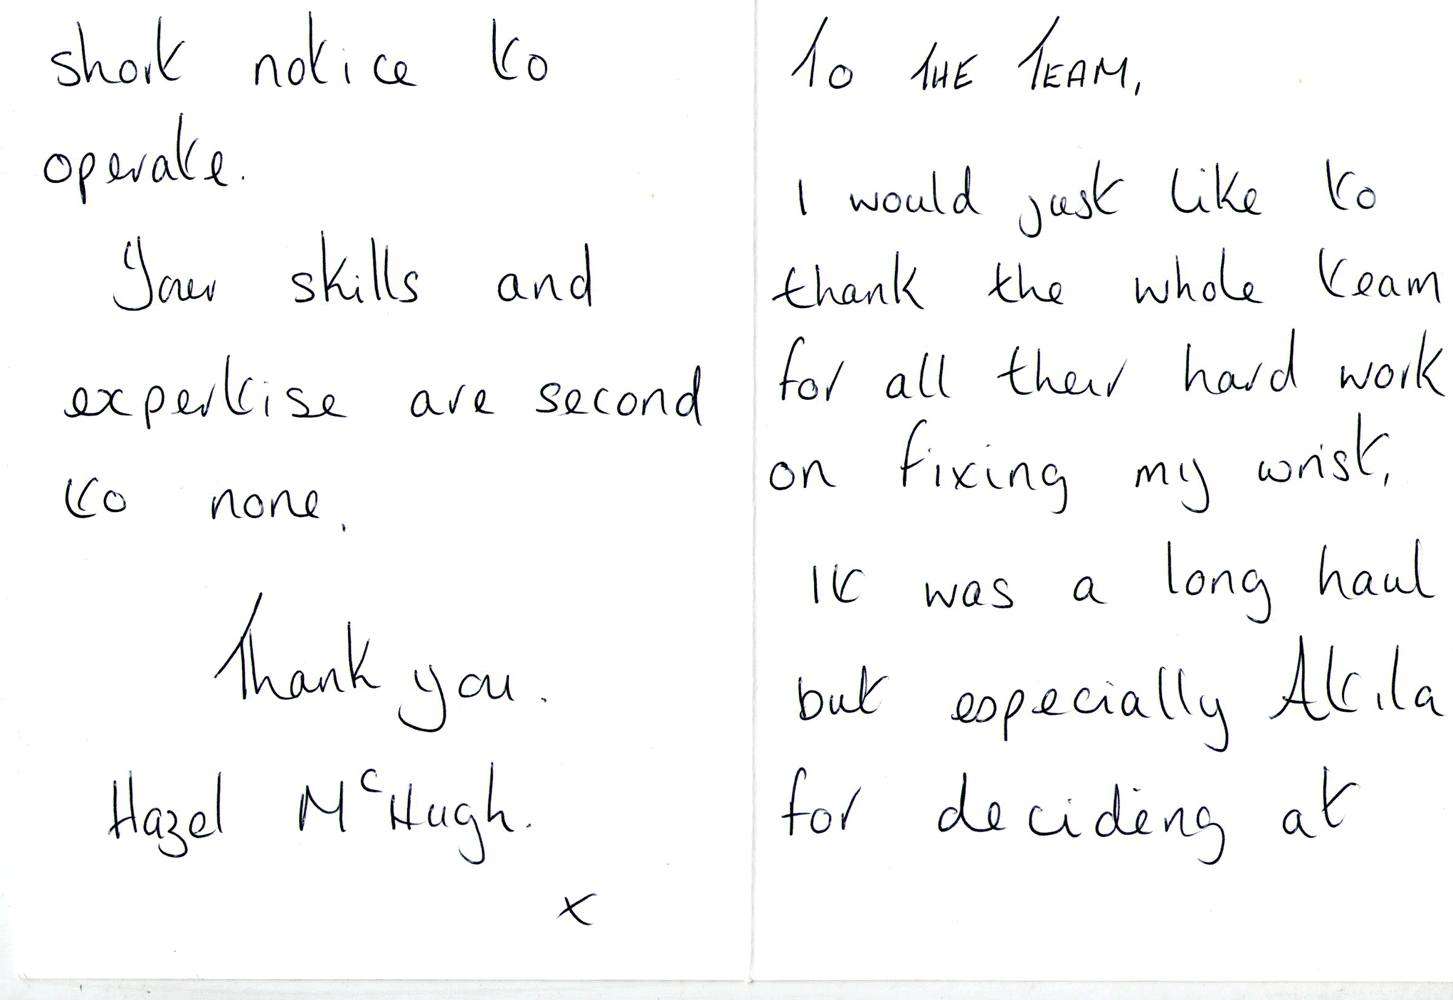 To THE TEAM,
I would just like to
thank the whole team
for all their hard work
on fixing my wrist,
It was a long haul
but especially Atila
for deciding at
short notice to
operate.
Your skills and
expertise are second
to none.
Thank you.
Hazel McHugh.
x